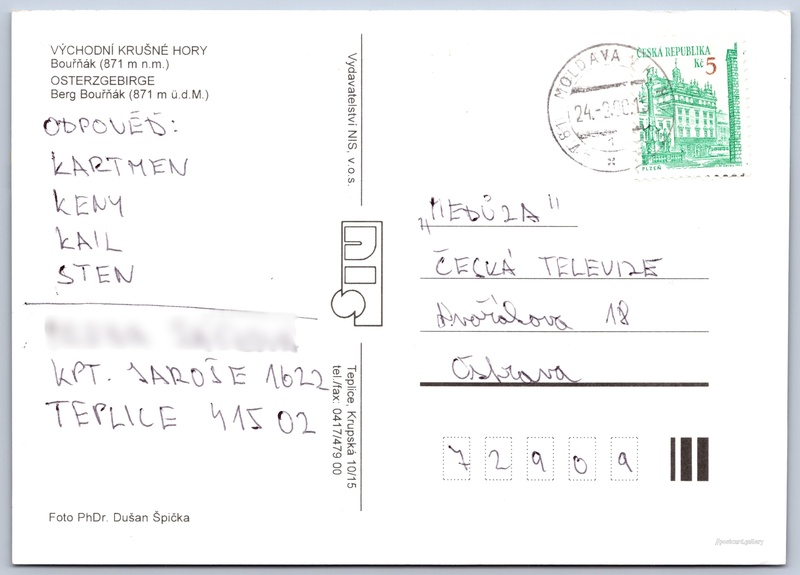 VÝCHODNÍ KRUŠNÉ HORY
Bouřňák (871 m n.m.)
OSTERZGEBIRGE
Berg Bouřňák (871 m ü.d.M.)
ODPOVĚĎ:
KARTMEN
KENY
KAIL
STEN
KPT. JAROŠE 1622
TEPLICE 415 02
Foto PhDr. Dušan Špička
Vydavatelství NIS, v.o.s.
NIS
Teplice, Krupská 10/15
tel./fax: 0417/479 00
MOLDAVA
ČESKÁ REPUBLIKA
Kč 5
PLZEŇ
„MEDŮZA"
ČESKÁ TELEVIZE
Dvořákova 18
Ostrava
72909